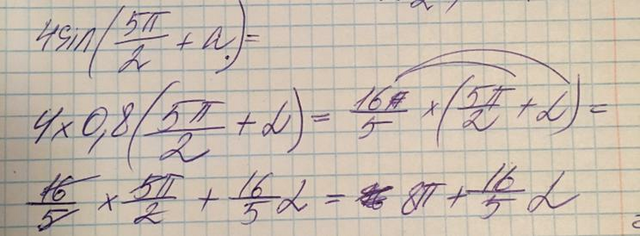 4sin(5π/2 + α) =
4 × 0,8(5π/2 + α) = 16/5 × (5π/2 + α) =
16/5 × 5π/2 + 16/5 α = 8π + 16/5 α